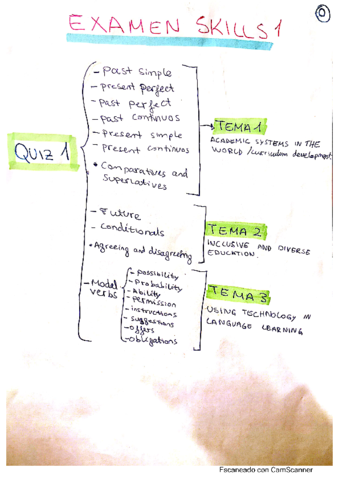 0
EXAMEN SKILLS 1
QUIZ 1
- past simple
- present perfect
- past perfect
- past continuos
- present simple
- present continuos
• Comparatives and
Superlatives
TEMA 1
ACADEMIC SYSTEMS IN THE
WORLD / curriculum development
- Future
- Conditionals
• Agreeing and disagreeting
TEMA 2
INCLUSIVE AND DIVERSE
EDUCATION.
- Model
verbs
- possibility
- Probability
- Ability
- Permission
- instructions
- suggestions
- offers
- obligations
TEMA 3
USING TECHNOLOGY IN
LANGUAGE LEARNING
Escaneado con CamScanner